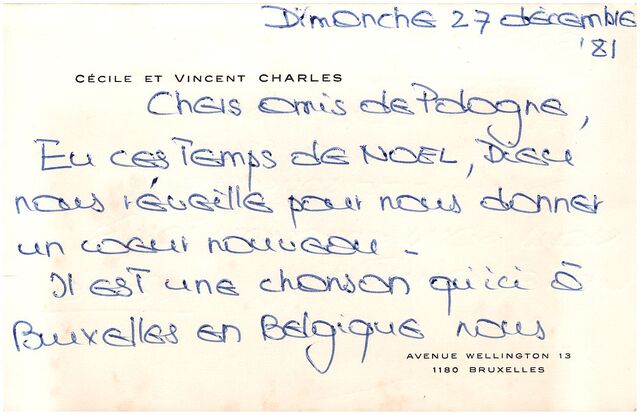 Dimanche 27 décembre
'81
CÉCILE ET VINCENT CHARLES
Chers amis de Pologne,
En ces temps de NOEL, Dieu
nous réveille pour nous donner
un coeur nouveau -
Il est une chanson qu'ici à
Bruxelles en Belgique nous
AVENUE WELLINGTON 13
1180 BRUXELLES